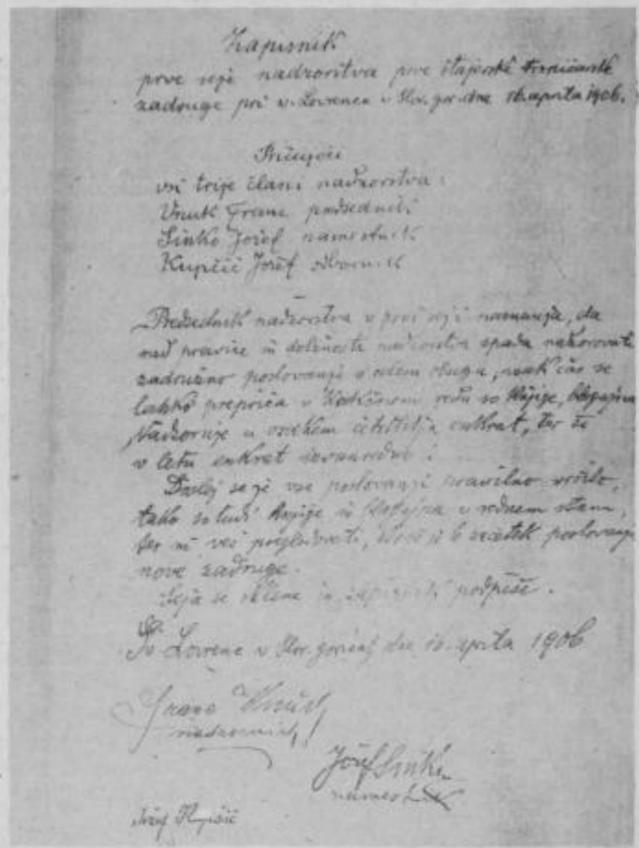 Zapisnik
prve seje nadzorstva prve štajerske
zadruge pri sv. Lovrencu v Slov. gor. dne 16. aprila 1906.
Pričujoči
vsi trije člani nadzorstva:
Vnuk Franc predsednik
Sinko Jožef namestnik
Kupčič Jožef odbornik
Predsednik nadzorstva v prvi seji naznanja, da
med pravice in dolžnosti nadzorstva spada nadzorovati
zadružno poslovanje v celem obsegu, vsak čas se
lahko prepriča v kakšnem redu so knjige, blagajna
Nadzoruje v vsakem četrtletju enkrat, ter še
v letu enkrat izvanredno.
Doslej se je vse poslovanje pravilno vršilo,
tako so tudi knjige in blagajna v rednem stanu,
ter ni več pregledovati, je začetek poslovanja
nove zadruge.
Seja se sklene in zapisnik podpiše.
Sv. Lovrenc v Slov. goricah dne 16. aprila 1906
Franc Vnuk
Jožef Sinko
namestnik
Jožef Kupčič